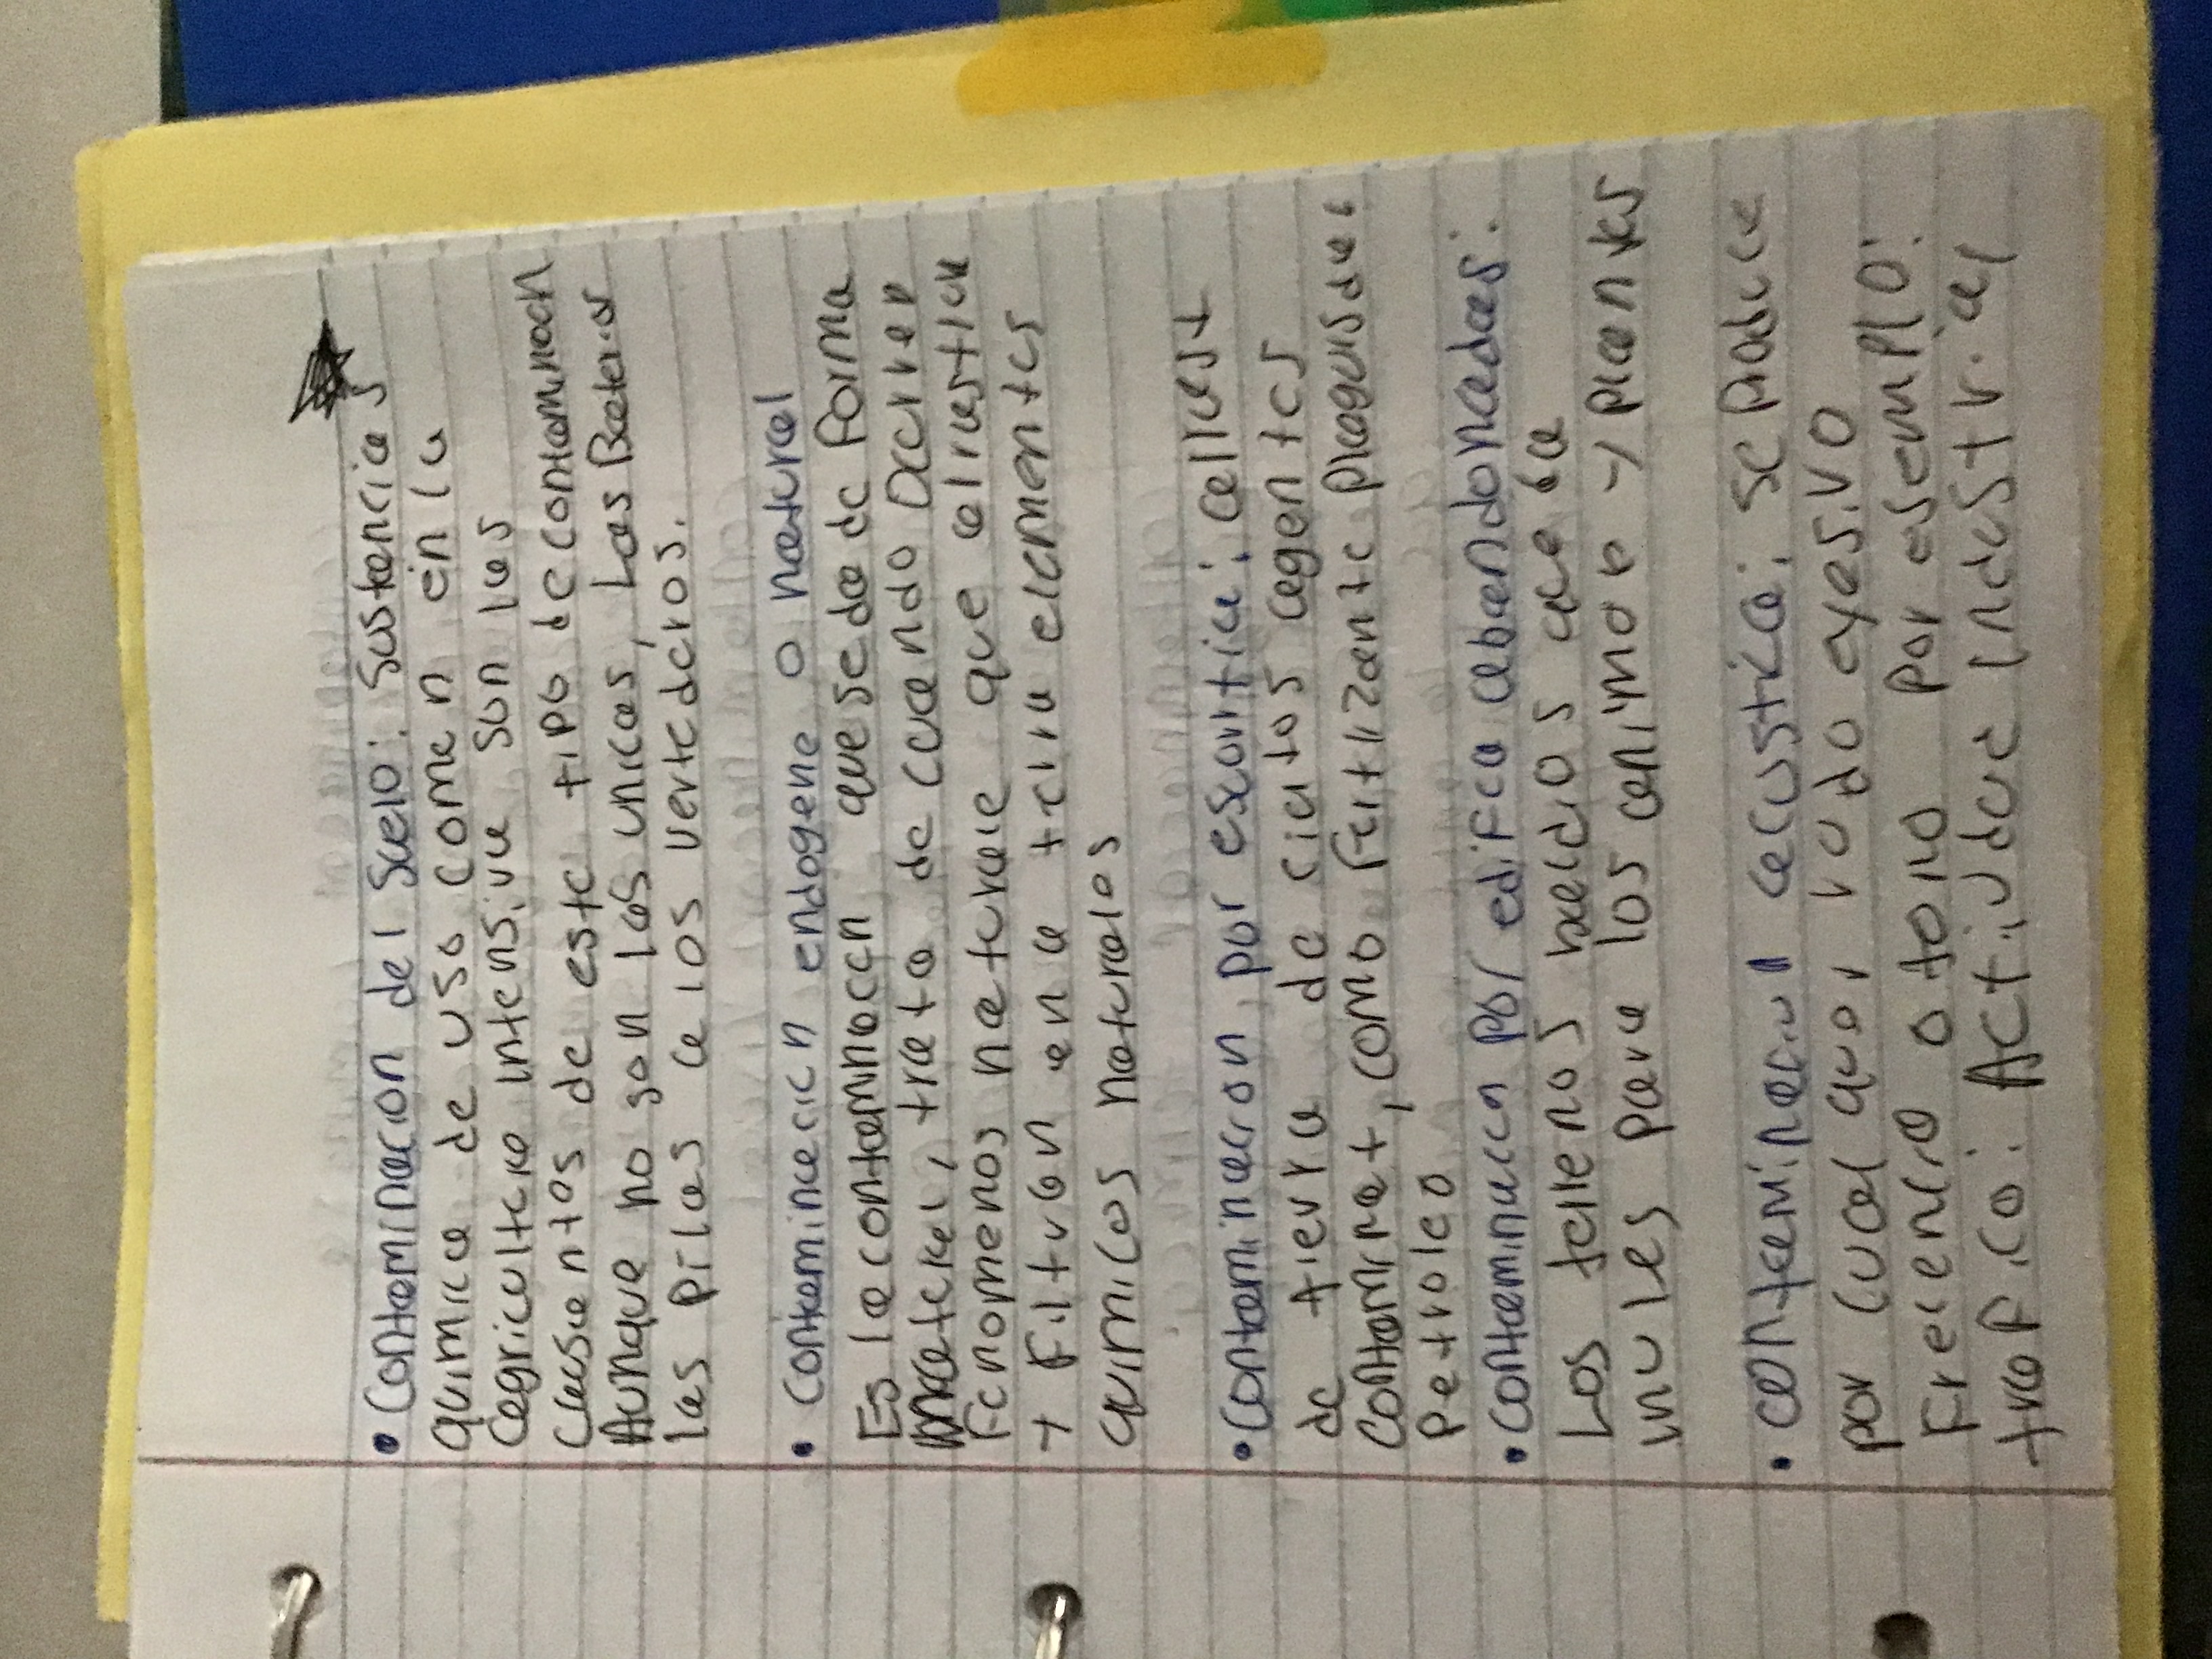 • Contaminacion del suelo: Sustancias
quimica de uso come n en la
agricultura intensiva son las
causantes de este tipo de contaminacn
Aunque no son las unicas, Las Baterias
las pilas a los vertederos.
• contaminacin endogene o natural
Es la contaminacn que se da de forma
natural, trata de cuando Ocrren
Fenomenos naturale que
y Filtren en a terra elementes
quimicos naturales
• Contaminacion, por escorrtia: al
de tierra de ciertos agentes
Contaminat, como Fertilizante
Petroleo
• Contaminaccn por edifica abandonadas:
Los terrenos baldios
para los animar y plantas
• acustica: se produce
por cual quer rudo exesivo
Frecencia o tono por esemplo:
trafico. Actividad indestrial